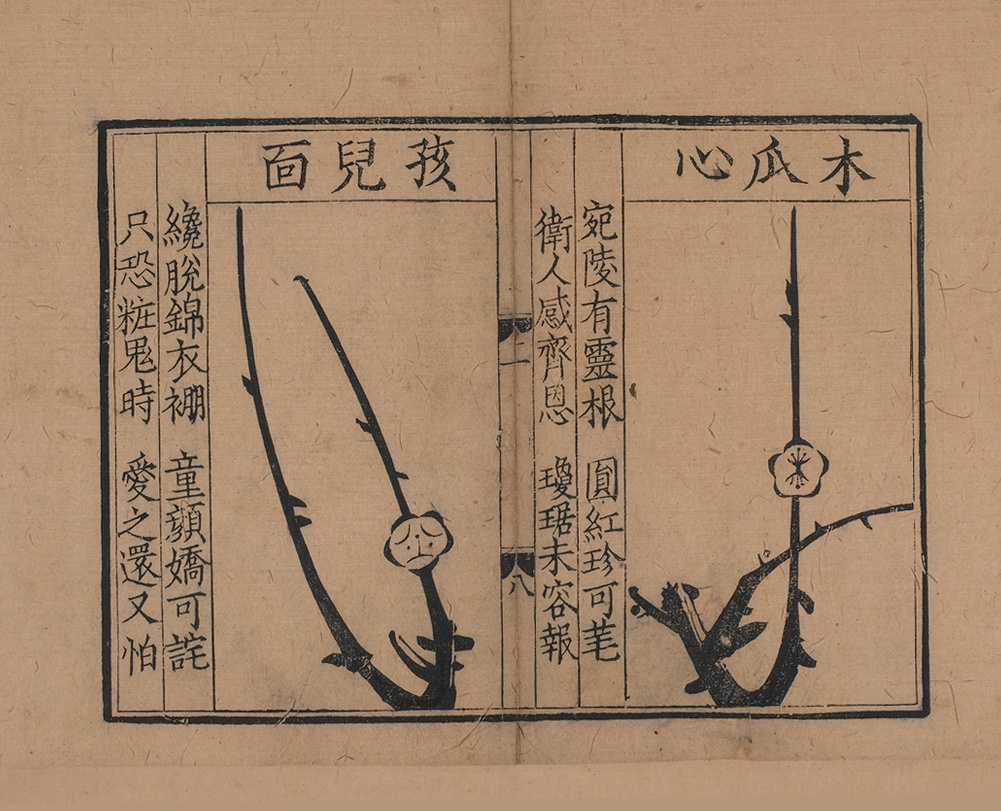 木瓜心
宛陵有靈根 圓紅珍可芼
衛人感齊恩 瓊琚未容報
二
八
孩兒面
纔脫錦衣棚 童顏嬌可詫
只恐粧鬼時 愛之還又怕